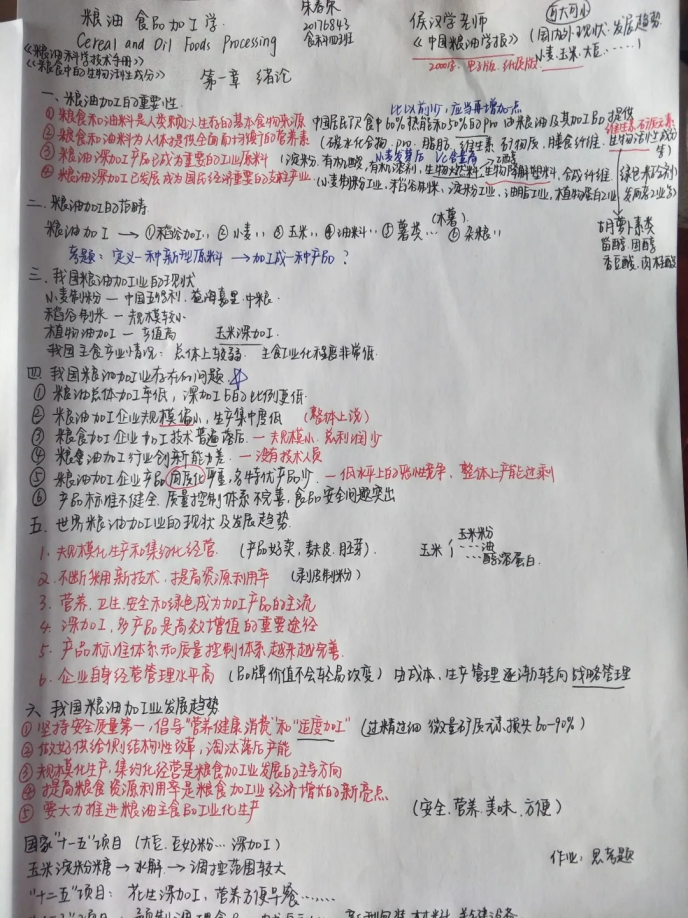 粮油 食品加工学
Cereal and Oil Foods Processing
20176843
侯汉学老师
《中国粮油学报》
(国内外现状、发展趋势
小麦.玉米.大豆……)
《粮油科学技术手册》
《粮食中的生物活性成分》
第一章 绪论
一、粮油加工的重要性.
比以前少,应当再增加点
①粮食和油料是人类赖以生存的基本食物来源 中国居民饮食中60%热能和50%的pro 由粮油及其加工品提供
②粮食和油料为人体提供全面而均衡的营养素 (碳水化合物. pro. 脂肪. 维生素. 矿物质. 膳食纤维. 生物活性成分等)
③粮油深加工产品已成为重要的工业原料 (淀粉.有机酸,有机溶剂,生物燃料,生物降解塑料,合成纤维.
④粮油深加工已发展成为国民经济重要的支柱产业 (小麦制粉工业,稻谷制米,淀粉工业,油脂工业,植物蛋白工业
胡萝卜素类
甾醇.固醇
香豆酸.肉桂酸
二.粮油加工的范畴
(木薯)
粮油加工 → ①稻谷加工,, ②小麦,, ③玉米,, ④油料,, ⑤薯类… ⑥杂粮,,
考题: 定义一种新型原料 → 加工成一种产品?
三.我国粮油加工业的现状
小麦制粉 — 中国五得利. 益海嘉里. 中粮.
稻谷制米 — 规模较小
植物油加工 — 产值高 玉米深加工.
我国主食产业情况: 总体上较弱. 主食工业化程度非常低.
四 我国粮油加工业存在的问题.
① 粮油总体加工率低,深加工的比例更低.
② 粮油加工企业规模偏小,生产集中度低 (整体上说)
③ 粮食加工企业加工技术普遍落后. — 规模小. 总利润少
④ 粮食油加工行业创新能力差. — 没有技术人员
⑤ 粮油加工企业产品同质化严重,名特优产品少. — 低水平上的恶性竞争, 整体上产能过剩
⑥ 产品标准不健全.质量控制体系不完善,食品安全问题突出
五. 世界粮油加工业的现状及发展趋势.
1. 规模化生产和集约化经营. (产品好卖,麸皮.胚芽). 玉米 { 玉米粉
…油
…醇溶蛋白.
2. 不断采用新技术,提高资源利用率 (剥皮制粉)
3. 营养.卫生.安全和绿色成为加工产品的主流
4. 深加工,多产品是高效增值的重要途径
5. 产品标准体系和质量控制体系越来越完善.
6. 企业自身经营管理水平高 (品牌价值不会轻易改变) 由成本.生产管理逐渐转向战略管理
六 我国粮油加工业发展趋势
① 坚持安全质量第一,倡导“营养健康消费”和“适度加工” (过精过细 微量矿质元素损失60-90%)
② 做好供给侧结构性改革,淘汰落后产能
③ 规模化生产,集约化经营是粮食加工业发展的主导方向
④ 提高粮食资源利用率是粮食加工业经济增长的新亮点
⑤ 要大力推进粮油主食品工业化生产 (安全.营养.美味.方便)
国家“十一五”项目 (大豆.豆奶粉…深加工)
作业: 思考题
玉米淀粉糖 → 水解. → 调控范围较大
“十二五”项目: 花生深加工,营养方便早餐……